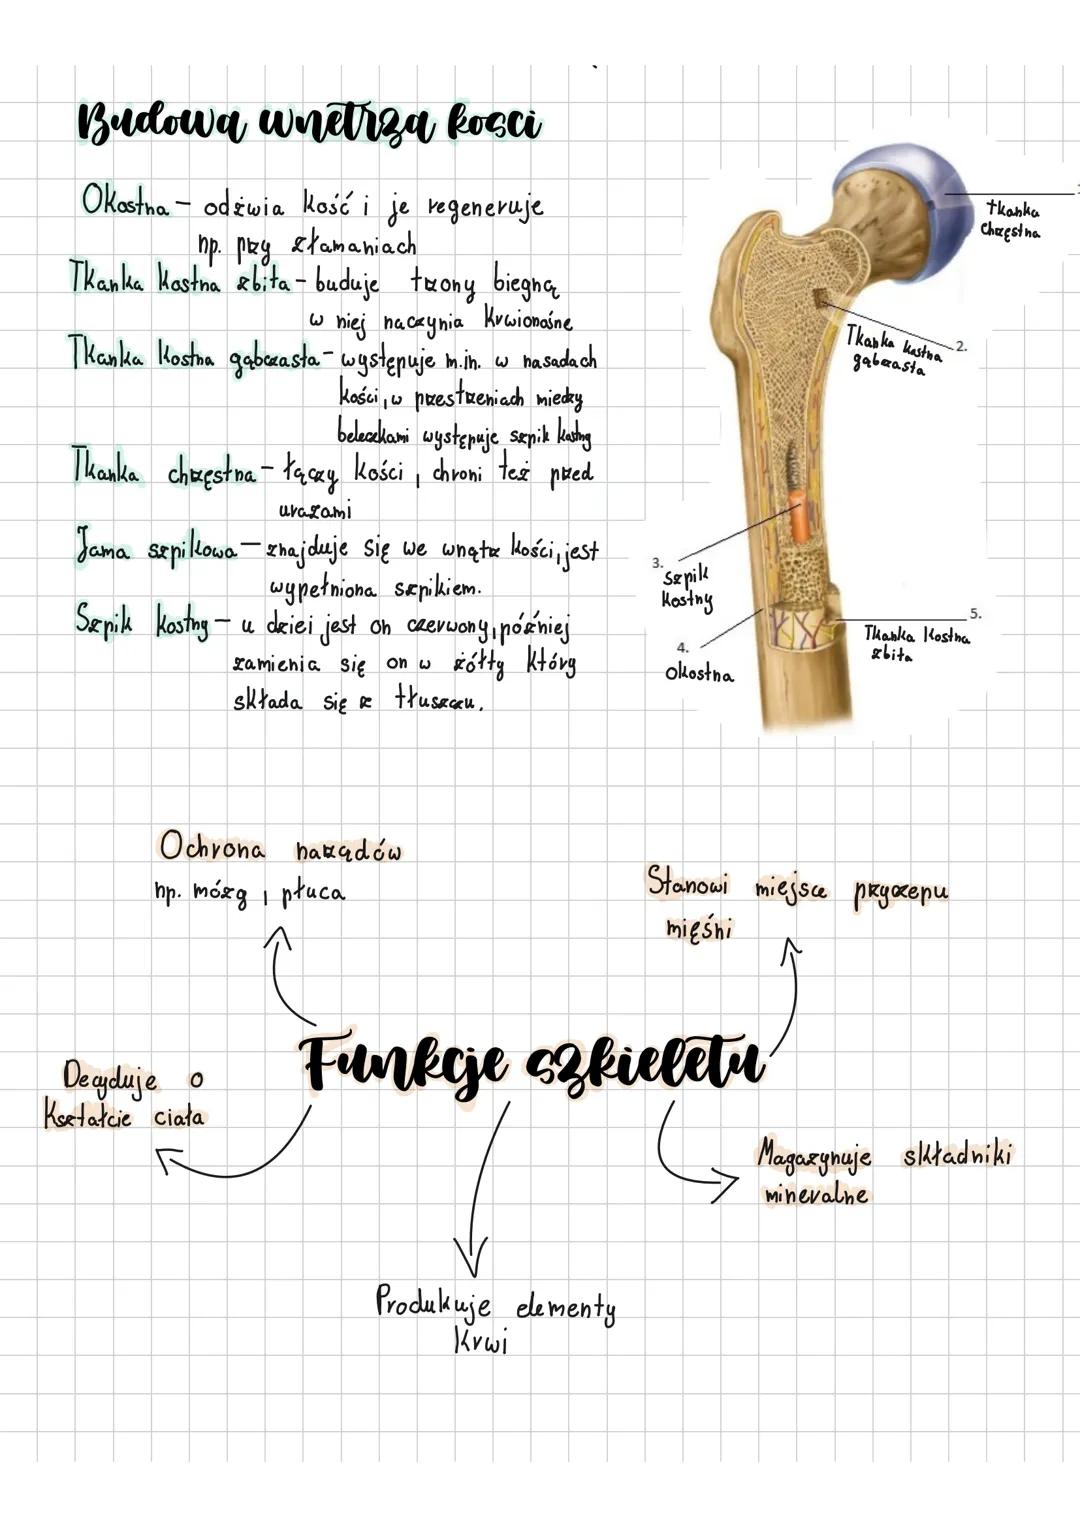 Budowa wnętrza kosci
Okostna - odżwia kość i je regeneruje
np. przy złamaniach
Tkanka kostna zbita - buduje trzony biegną
w niej naczynia krwionośne
Tkanka kostna gąbczasta - występuje m.in. w nasadach
kości, w przestrzeniach miedzy
beleczkami występuje szpik kostny
Tkanka chrzęstna - łączy kości, chroni też przed
urazami
Jama szpikowa - znajduje się we wnątrz kości, jest
wypełniona szpikiem.
Szpik kostny - u dziei jest on czerwony, później
zamienia się on w żółty który
składa się z tłuszczu.
1.
tkanka
chrzęstna
2.
Tkanka kostna
gąbczasta
3.
szpik
kostny
4.
okostna
5.
Tkanka kostna
zbita
Ochrona narządów
np. mózg, płuca
Stanowi miejsce przyczepu
mięśni
Funkcje szkieletu
Decyduje o
kształcie ciała
Magazynuje składniki
mineralne
Produkuje elementy
krwi